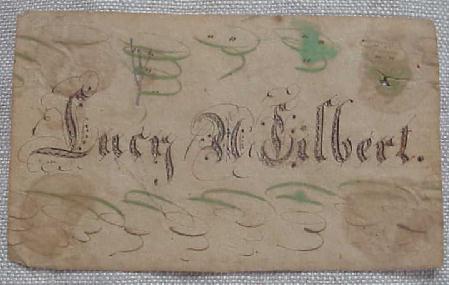 Lucy N Gilbert.